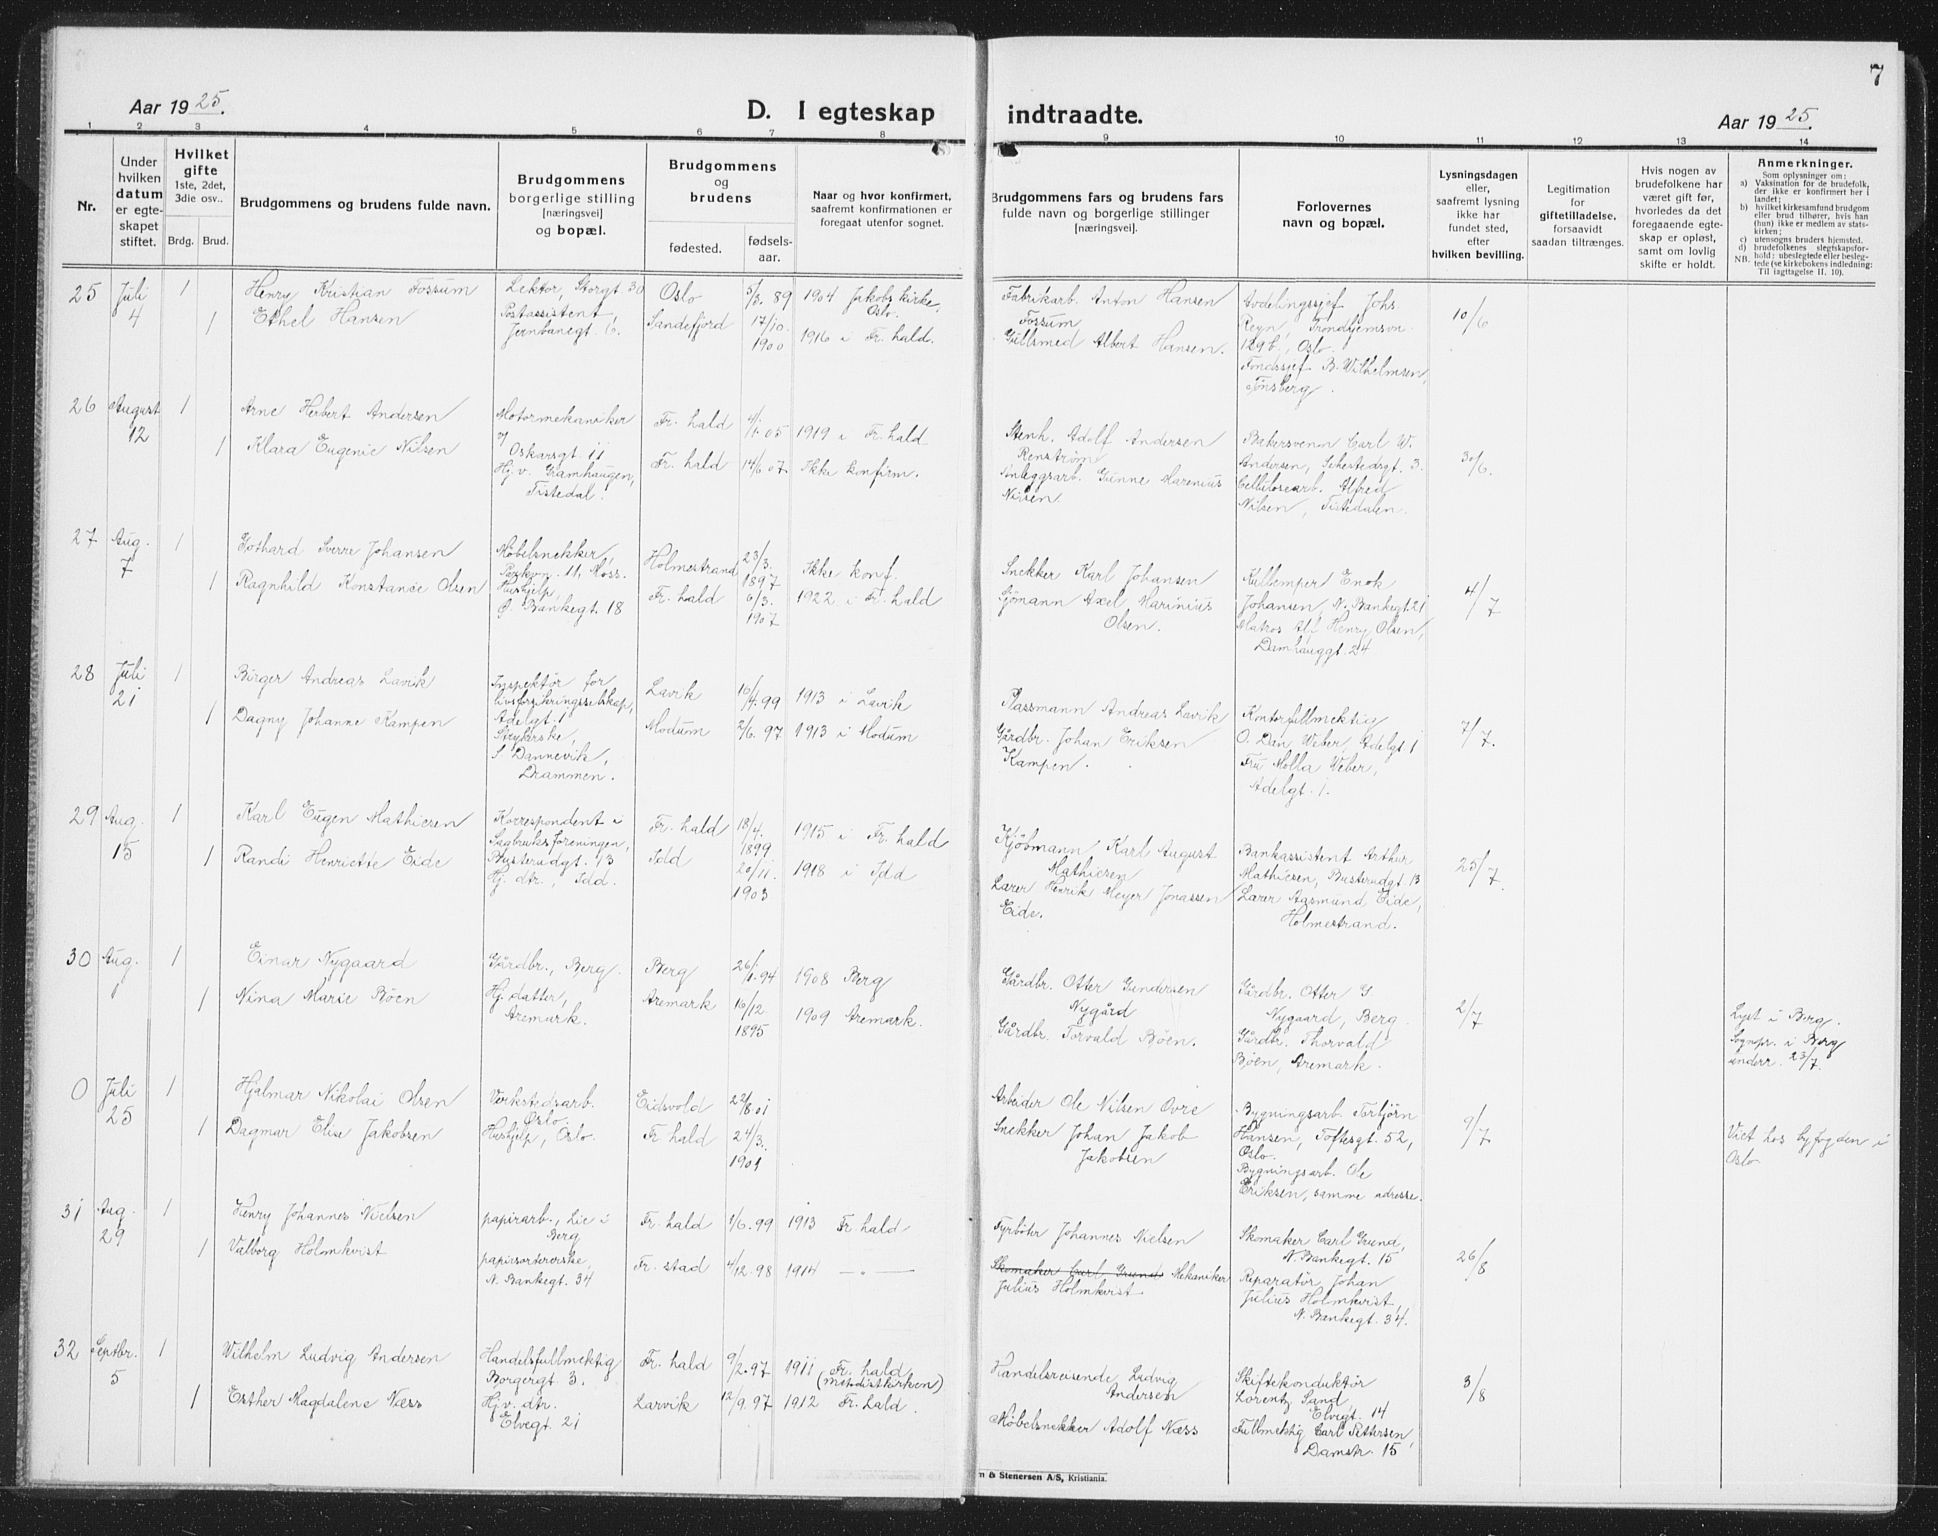 7
Aar 1925.
D. I egteskap indtraadte.
Aar 1925.
1 2 3 4 5 6 7 8 9 10 11 12 13 14
Nr.
Under hvilken datum er egte-skapet stiftet.
Hvilket gifte 1ste, 2det, 3die osv..
Brdg. Brud.
Brudgommens og brudens fulde navn.
Brudgommens borgerlige stilling [næringsvei] og bopæl.
Brudgommens og brudens
fødested.
fødsels-aar.
Naar og hvor konfirmert, saafremt konfirmationen er foregaat utenfor sognet.
Brudgommens fars og brudens fars fulde navn og borgerlige stillinger [næringsvei].
Forlovernes navn og bopæl.
Lysningsdagen eller, saafremt lysning ikke har fundet sted, efter hvilken bevilling.
Legitimation for giftetilladelse, forsaavidt saadan tiltrænges.
Hvis nogen av brudefolkene har været gift før, hvorledes da det foregaaende egte-skap er opløst, samt om lovlig skifte er holdt.
Anmerkninger.
Som oplysninger om:
a) Vaksination for de brudefolk, der ikke er konfirmert her i landet;
b) hvilket kirkesamfund brudgom eller brud tilhører, hvis han (hun) ikke er medlem av stats-kirken;
c) utensogns bruders hjemsted.
d) brudefolkenes slegtskapsfor-hold; ubeslegtede eller besleg-tede (se kirkebokens indledning: Til iagttagelse II. 10).
NB.
25 Juli 4 1 Henry Kristian Fossum Lektor, Storgt 30 Oslo 5/3. 89 1904 Jakobs kirke, Oslo. Fabrikarb. Anton Hansen Fossum Avdelingssjef Johs Regn, Trondhjemsvn. 129b, Oslo. 10/6
1 Ethel Hansen Postassistent, Jernbanegt. 6. Sandefjord 17/10. 1900 1916 i Fr. hald. Gullsmed Albert Hansen. Fondssjef B. Wilhelmsen, Tønsberg.
26 August 12 1 Arne Herbert Andersen Motormekaniker Oskarsgt. 11 Fr. hald 4/1. 05 1919 i Fr. hald Stenh. Adolf Andersen Renstrøm Bakersvenn Carl W. Andersen, Sehestedsgt. 3. 30/6.
1 Klara Eugenie Nilsen Hj. v. Gramhaugen, Tistedal. Fr. hald 14/6 07. Ikke konfirm. Anleggsarb. Gunne Marenius Nilsen Cellulosearb. Alfred Nilsen, Tistedalen.
27 Aug. 7 1 Gothard Sverre Johansen Møbelsnekker, Parkvn. 11, Moss. Holmestrand 23/3. 1897 Ikke konf. Snekker Karl Johansen Kullemper Enok Johansen, N. Bankegt. 21 4/7
1 Ragnhild Konstance Olsen Hushjelp, Ø. Bankegt. 18 Fr. hald 6/3. 1907 1922 i Fr. hald Sjømann Axel Marinius Olsen. Matros Alf Henry Olsen, Damhauggt. 24
28 Juli 21 1 Birger Andreas Lavik Inspektør for livsforsikringsselskap, Adelgt. 1 Lavik 16/4. 99 1913 i Lavik Plassmann Andreas Lavik Kontorfullmektig O. Dan Weber, Adelgt 1 7/7.
1 Dagny Johanne Kampen Strykerske, S. Dannevik, Drammen. Modum 2/6. 97 1913 i Modum Gårdbr. Johan Eriksen Kampen. Fru Molla Weber, Adelgt. 1.
29 Aug. 15 1 Karl Eugen Mathiesen Korrespondent i Sagbruksforeningen, Busterudgt. 13 Fr. hald 18/4. 1899 1915 i Fr. hald Kjøbmann Karl August Mathiesen Bankassistent Arthur Mathiesen, Busterudgt. 13 25/7.
1 Randi Henriette Eide Hj. dtr., Idd. Idd 20/11. 1903 1918 i Idd Lærer Henrik Meyer Jonassen Eide. Lærer Aasmund Eide, Holmestrand.
30 Aug. 1 1 Einar Nygaard Gårdbr., Berg. Berg 26/1. 94 1908 Berg Gårdbr. Otter Gundersen Nygård Gårdbr. Otter G Nygaard, Berg. 2/7 Lyst i Berg. Sognepr. i Berg underr. 23/7.
1 Nina Marie Bøen Hj. datter, Aremark. Aremark 16/12 1895 1909 Aremark. Gårdbr. Torvald Bøen. Gårdbr. Thorvald Bøen, Aremark.
0 Juli 25 1 Hjalmar Nikolai Olsen Verkstedsarb. Oslo. Eidsvold 22/8. 01 Arbeider Ole Nilsen Ovre Bygningsarb. Torbjörn Hansen, Toftesgt. 52, Oslo. 9/7 Viet hos byfogden i Oslo
1 Dagmar Elise Jakobsen Hushjelp, Oslo. Fr. hald 24/3. 1901 Snekker Johan Jakob Jakobsen Bygningsarb. Ole Eriksen, samme adresse.
31 Aug. 29 1 Henry Johannes Nielsen papirarb., Lie i Berg Fr. hald 1/6. 99 1913 Fr. hald Fyrbøter Johannes Nielsen Skomaker Carl Grund, N. Bankegt. 15 26/8
1 Valborg Holmkvist papirsortererske, N. Bankegt. 34 Fr. stad 4/12. 98 1914 — „ — Skomaker Carl Grund Mekaniker Julius Holmkvist Reparatør Johan Julius Holmkvist, N. Bankegt. 34.
32 Septbr. 5 1 Wilhelm Ludvig Andersen Handelsfullmektig Borgergt 3. Fr. hald 9/2. 97 1911 Fr. hald (Metodistkirken) Handelsreisende Ludvig Andersen Skiftekonduktør Lorentz Sand Elvegt. 14 3/8
1 Esther Magdalene Næss Hj. v. dtr. Elvegt. 21 Larvik 12/9. 97 1912 Fr. hald. Møbelsnekker Adolf Næss Fullmektig Carl Pettersen, Damstr. 15
m & Stenersen A/S, Kristiania.